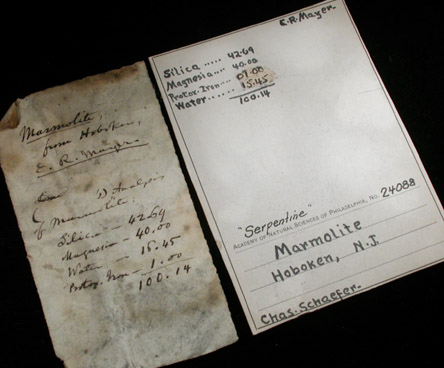 Marmolite,
from Hoboken,
E. R. Mayer.
Analysis
of Marmolite.
Silica — 42.69
Magnesia — 40.00
Water — 16.45
Protox. Iron — 1.00
100.14
E.R. Mayer.
Silica ..... 42.69
Magnesia.... 40.00
Protox. Iron... 01.00
Water...... 15.45
100.14
"Serpentine"
ACADEMY OF NATURAL SCIENCES OF PHILADELPHIA, NO. 24088
Marmolite
Hoboken, N.J.
Chas. Schaefer.